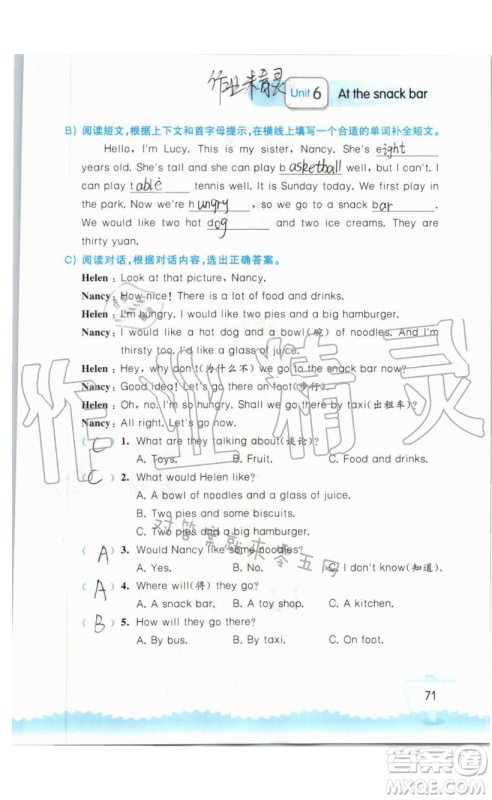 作业来精灵
Unit 6 At the snack bar
B) 阅读短文,根据上下文和首字母提示,在横线上填写一个合适的单词补全短文。
Hello, I'm Lucy. This is my sister, Nancy. She's eight
years old. She's tall and she can play basketball well, but I can't. I
can play table tennis well. It is Sunday today. We first play in
the park. Now we're hungry, so we go to a snack bar.
We would like two hot dog and two ice creams. They are
thirty yuan.
C) 阅读对话,根据对话内容,选出正确答案。
Helen: Look at that picture, Nancy.
Nancy: How nice! There is a lot of food and drinks.
Helen: I'm hungry. I would like two pies and a big hamburger.
Nancy: I would like a hot dog and a bowl(碗) of noodles. And I'm
thirsty too. I'd like a glass of juice.
Helen: Hey, why don't(为什么不) we go to the snack bar now?
Nancy: Good idea! Let's go there on foot(步行).
Helen: Oh, no. I'm so hungry. Shall we go there by taxi(出租车)?
Nancy: All right. Let's go now.
( C ) 1. What are they talking about(谈论)?
A. Toys. B. Fruit. C. Food and drinks.
( C ) 2. What would Helen like?
A. A bowl of noodles and a glass of juice.
B. Two pies and some biscuits.
C. Two pies and a big hamburger.
( A ) 3. Would Nancy like some noodles?
A. Yes. B. No. C. I don't know(知道).
( A ) 4. Where will(将) they go?
A. A snack bar. B. A toy shop. C. A kitchen.
( B ) 5. How will they go there?
A. By bus. B. By taxi. C. On foot.
作业精灵
对答案就来零五网
71
答案圈
MXQE.COM